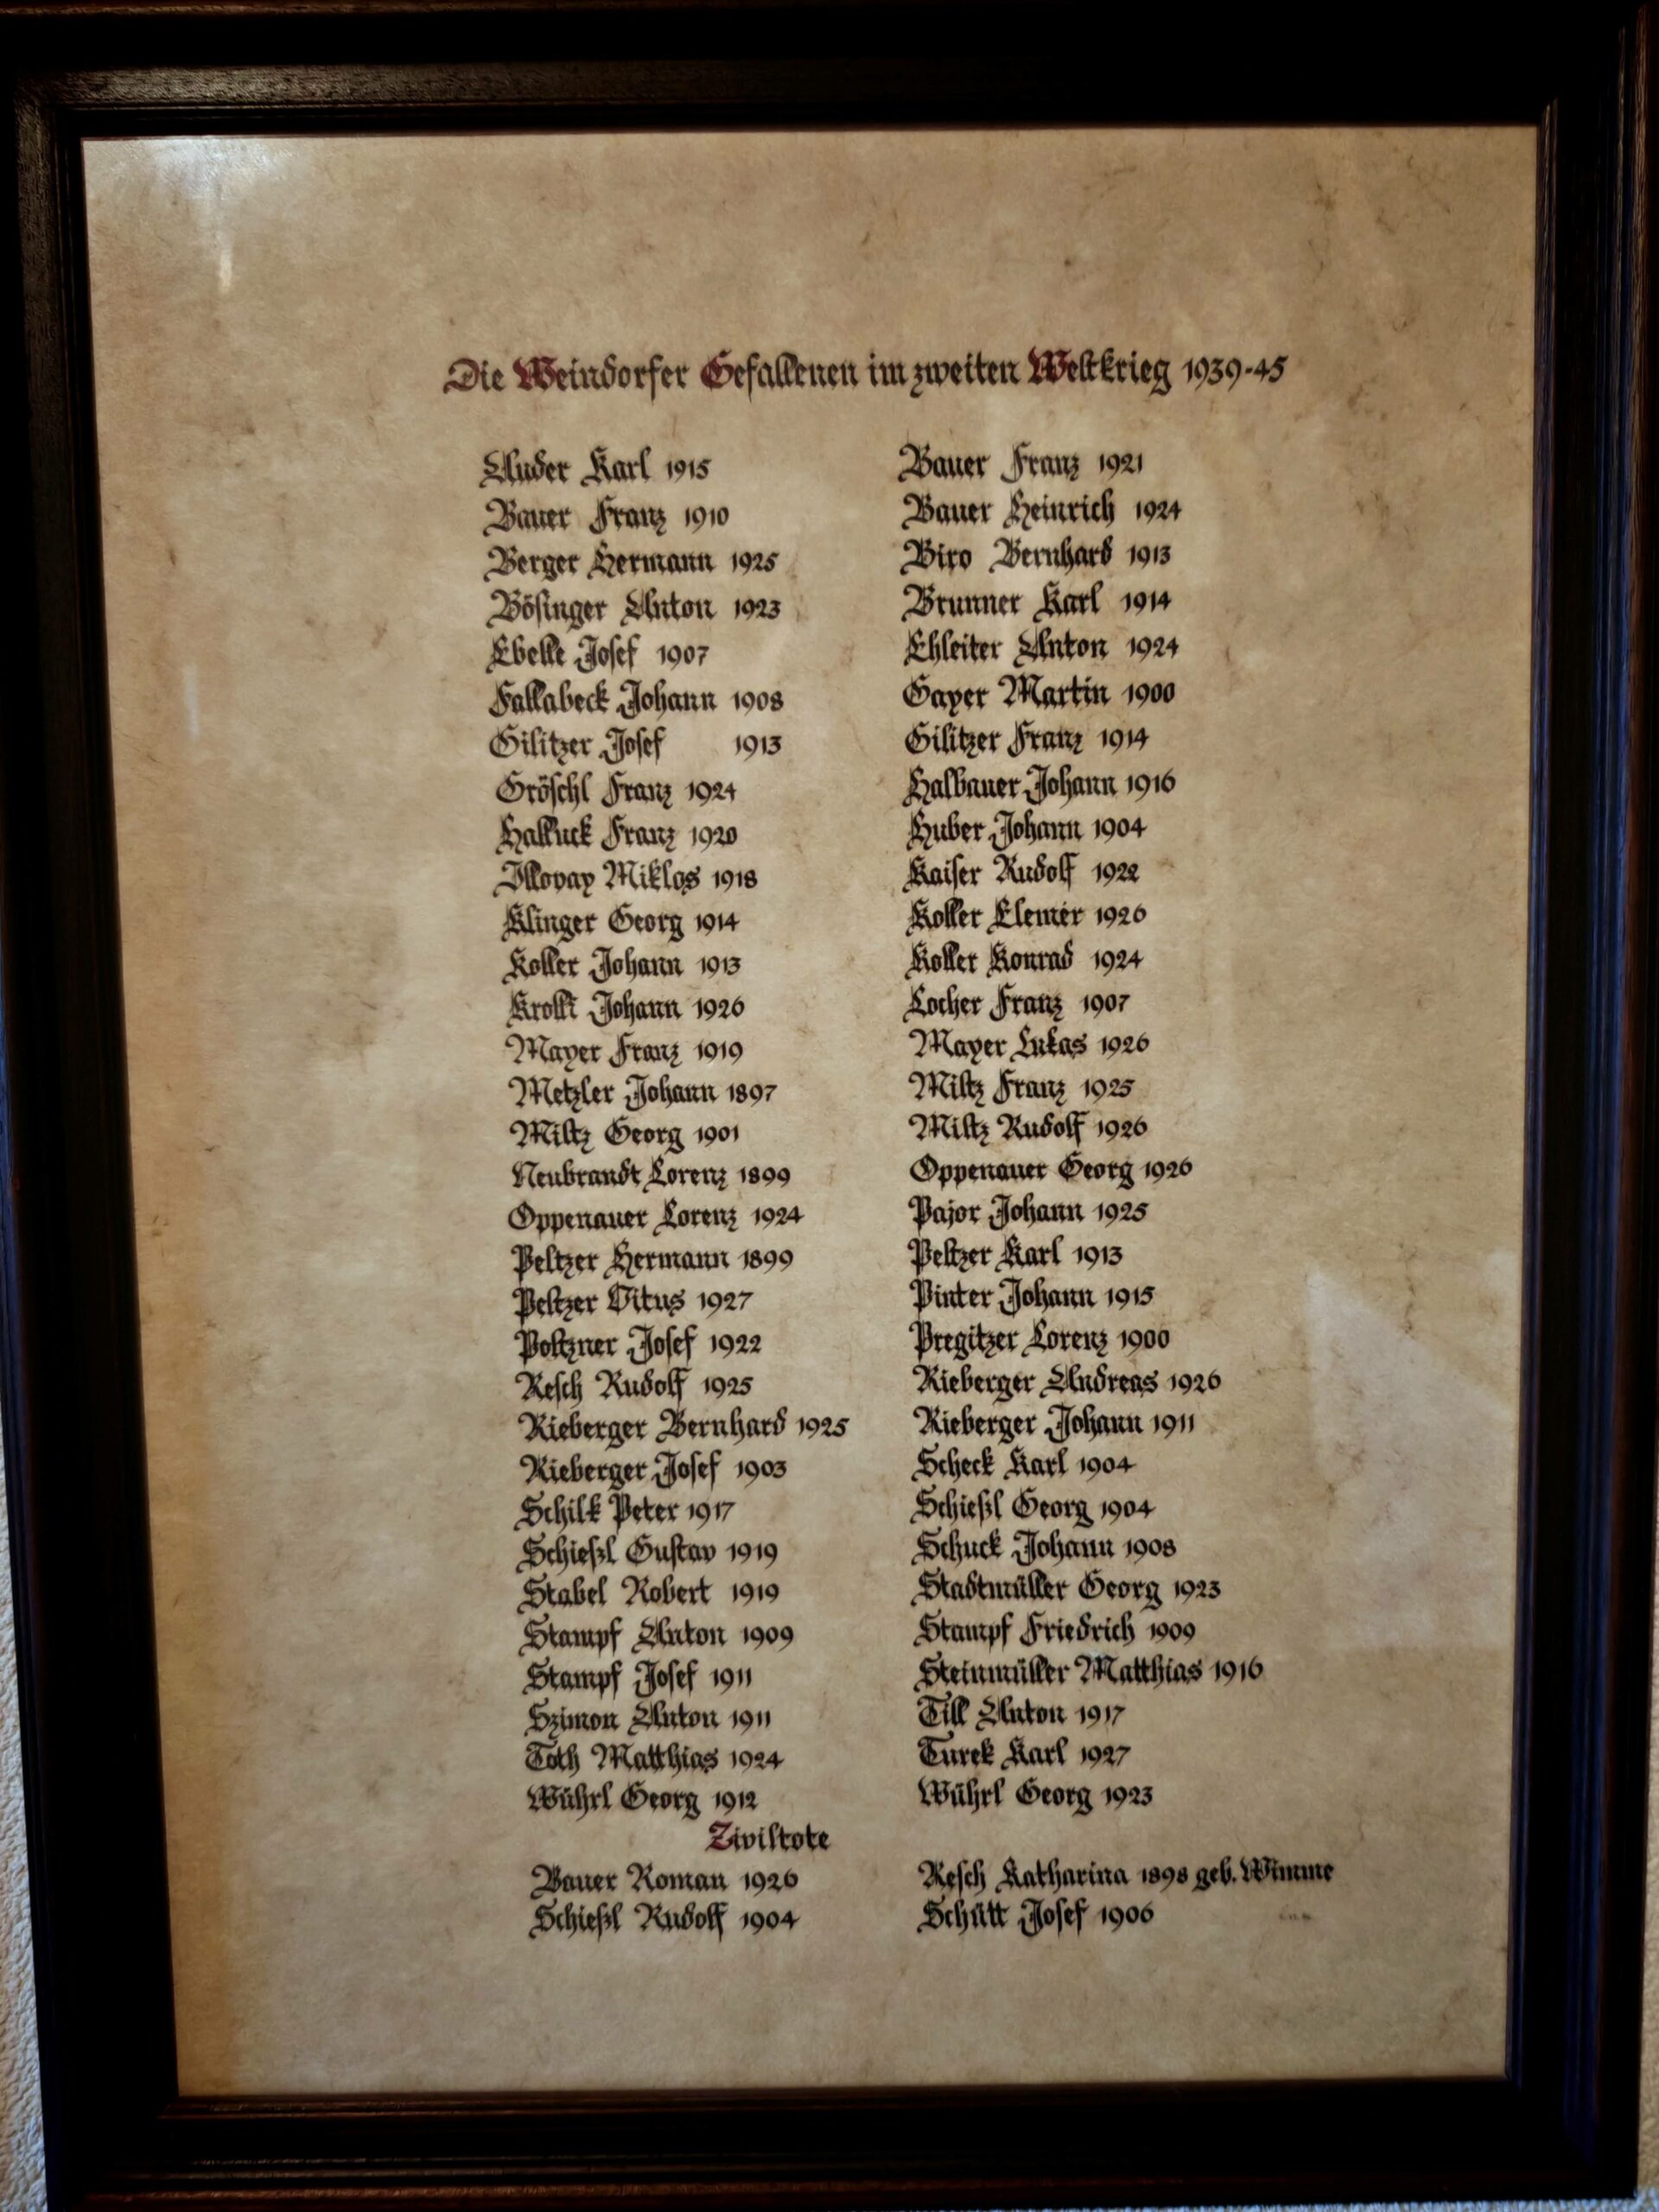 Die Weindorfer Gefallenen im zweiten Weltkrieg 1939-45
Auder Karl 1915
Bauer Franz 1910
Berger Hermann 1925
Bösinger Anton 1923
Ebelle Josef 1907
Fallabeck Johann 1908
Gilitzer Josef 1913
Gröschl Franz 1924
Halluck Franz 1920
Illovay Miklos 1918
Klinger Georg 1914
Koller Johann 1913
Johann 1926
Mayer Franz 1919
Metzler Johann 1897
Miltz Georg 1901
Neubrandt Lorenz 1899
Oppenauer Lorenz 1924
Peltzer Hermann 1899
Peltzer Vitus 1927
Poltzner Josef 1922
Resch Rudolf 1925
Rieberger Bernhard 1925
Rieberger Josef 1903
Schilk Peter 1917
Schieszl Gustav 1919
Stabel Robert 1919
Stampf Anton 1909
Stampf Josef 1911
Szimon Anton 1911
Toth Matthias 1924
Wührl Georg 1912
Bauer Franz 1921
Bauer Heinrich 1924
Biro Bernhard 1913
Brunner Karl 1914
Ehleiter Anton 1924
Gayer Martin 1900
Gilitzer Franz 1914
Halbauer Johann 1916
Huber Johann 1904
Kaiser Rudolf 1922
Koller Elemér 1926
Koller Konrad 1924
Locher Franz 1907
Mayer Lukas 1926
Miltz Franz 1925
Miltz Rudolf 1926
Oppenauer Georg 1926
Pajor Johann 1925
Peltzer Karl 1913
Pinter Johann 1915
Pregitzer Lorenz 1900
Rieberger Andreas 1926
Rieberger Johann 1911
Scheck Karl 1904
Schieszl Georg 1904
Schuck Johann 1908
Stadtmüller Georg 1923
Stampf Friedrich 1909
Steinmüller Matthias 1916
Till Anton 1917
Turek Karl 1927
Wührl Georg 1923
Ziviltote
Bauer Roman 1926
Schieszl Rudolf 1904
Resch Katharina 1898 geb. Wimme
Schütt Josef 1906